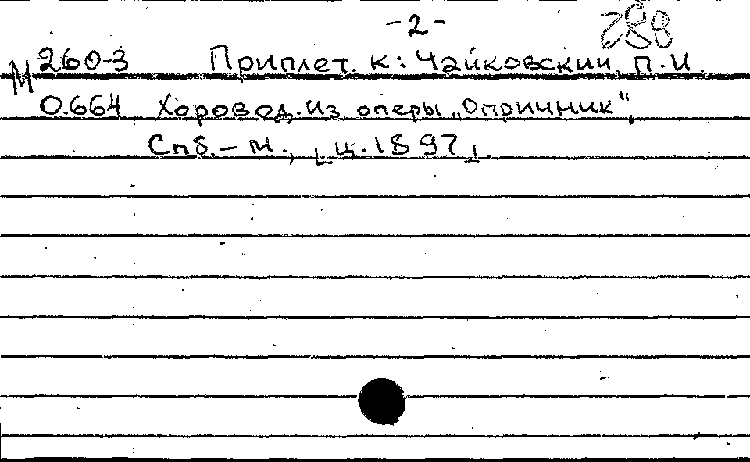 -2- 288
М 260-3 Приплет. к: Чайковский, П.И.
0.664 Хоровод. Из оперы „Опричник“,
Спб.-М., [ц.1897].